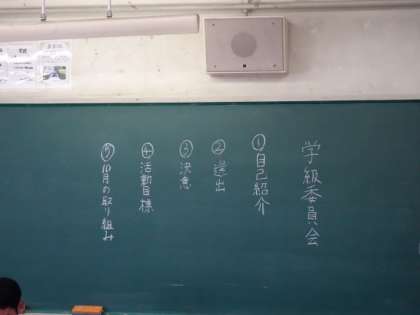 学級委員会
①自己紹介
②選出
③決意
④活動目標
⑤10月の取り組み